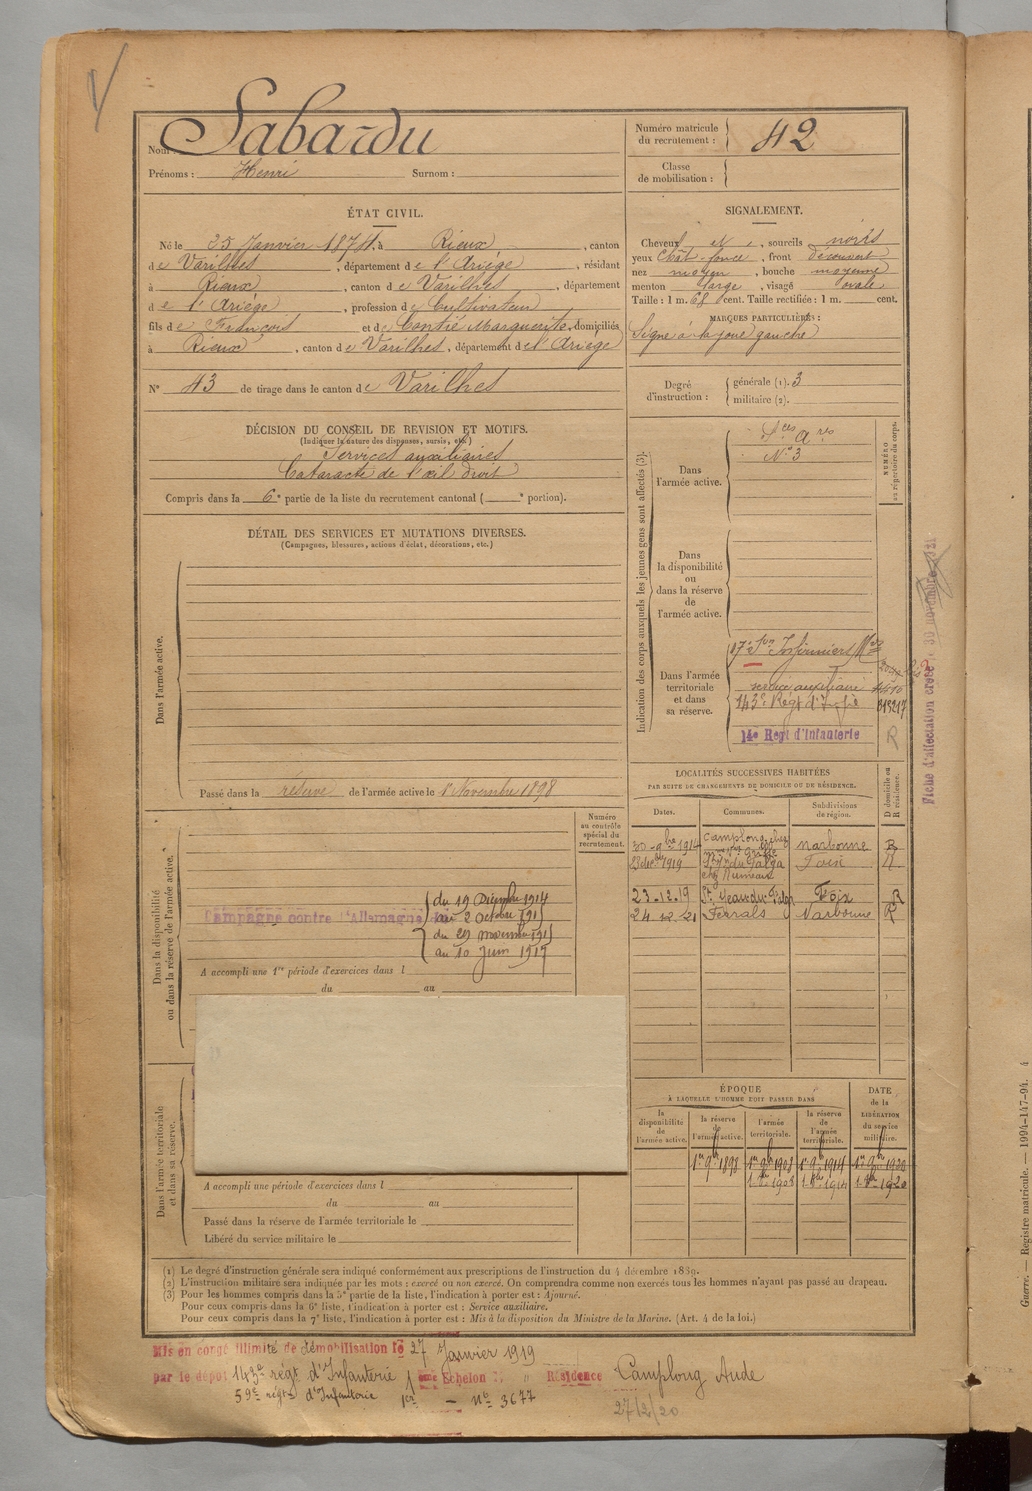 Nom : Sabardu
Prénoms : Henri Surnom :
Numéro matricule du recrutement : 42
Classe de mobilisation :
ÉTAT CIVIL.
Né le 25 Janvier 1874, à Rieux, canton
de Varilhes, département de l'Ariége, résidant
à Rieux, canton de Varilhes, département
de l'Ariége, profession de Cultivateur
fils de François et de Contié Marguerite, domiciliés
à Rieux, canton de Varilhes, département de l'Ariége
N° 43 de tirage dans le canton de Varilhes
SIGNALEMENT.
Cheveux et, sourcils noirs
yeux chât. foncé, front découvert
nez moyen, bouche moyenne
menton large, visage ovale
Taille : 1 m. 68 cent. Taille rectifiée : 1 m. cent.
MARQUES PARTICULIÈRES :
Signe à la joue gauche
Degré d'instruction : générale (1). 3
militaire (2).
DÉCISION DU CONSEIL DE REVISION ET MOTIFS.
(Indiquer la nature des dispenses, sursis, etc.)
Services auxiliaires
Cataracte de l'œil droit
Compris dans la 6e partie de la liste du recrutement cantonal ( e portion).
DÉTAIL DES SERVICES ET MUTATIONS DIVERSES.
(Campagnes, blessures, actions d'éclat, décorations, etc.)
Dans l'armée active.
Passé dans la réserve de l'armée active le 1er Novembre 1898
Indication des corps auxquels les jeunes gens sont affectés (3).
NUMÉRO au répertoire du corps.
Dans l'armée active.
Sces Ares
N° 3
Dans la disponibilité ou dans la réserve de l'armée active.
Dans l'armée territoriale et dans sa réserve.
17e Son Infirmiers Mres
service auxiliaire
143e Régt d'Infie
14e Regt d'Infanterie
R
Fiche d'affectation créée le 30 novembre 1921
LOCALITÉS SUCCESSIVES HABITÉES
PAR SUITE DE CHANGEMENTS DE DOMICILE OU DE RÉSIDENCE.
Dates. Communes. Subdivisions de région. D domicile ou R résidence.
30-9bre 1914 Camplong chez Narbonne R
23 dec 1919 Foix R
23.12.19 St Jean du Falga Foix R
24.12.21 Ferrals Narbonne R
Dans la disponibilité ou dans la réserve de l'armée active.
Numéro au contrôle spécial du recrutement.
Campagne contre l'Allemagne
du 19 Décembre 1914
au 2 Octobre 1915
du 29 novembre 1915
au 10 Juin 1917
A accompli une 1re période d'exercices dans l
du au
Dans l'armée territoriale et dans sa réserve.
A accompli une période d'exercices dans l
du au
Passé dans la réserve de l'armée territoriale le
Libéré du service militaire le
ÉPOQUE
À LAQUELLE L'HOMME DOIT PASSER DANS
la disponibilité de l'armée active. la réserve de l'armée active. l'armée territoriale. la réserve de l'armée territoriale. DATE de la LIBÉRATION du service militaire.
1er 9bre 1898 1er 9bre 1908 1er 9bre 1914 1er 9bre 1920
1908 1914 1920
(1) Le degré d'instruction générale sera indiqué conformément aux prescriptions de l'instruction du 4 décembre 1889.
(2) L'instruction militaire sera indiquée par les mots : exercé ou non exercé. On comprendra comme non exercés tous les hommes n'ayant pas passé au drapeau.
(3) Pour les hommes compris dans la 5e partie de la liste, l'indication à porter est : Ajourné.
Pour ceux compris dans la 6e liste, l'indication à porter est : Service auxiliaire.
Pour ceux compris dans la 7e liste, l'indication à porter est : Mis à la disposition du Ministre de la Marine. (Art. 4 de la loi.)
Mis en congé illimité de démobilisation le 27 Janvier 1919
par le dépôt 143e régt d'Infanterie 1 eme Echelon Résidence Camplong Aude
59e régt d'Infanterie 1er — No 3677
27/2/20
Guerre. — Registre matricule. — 1994-147-94. 4